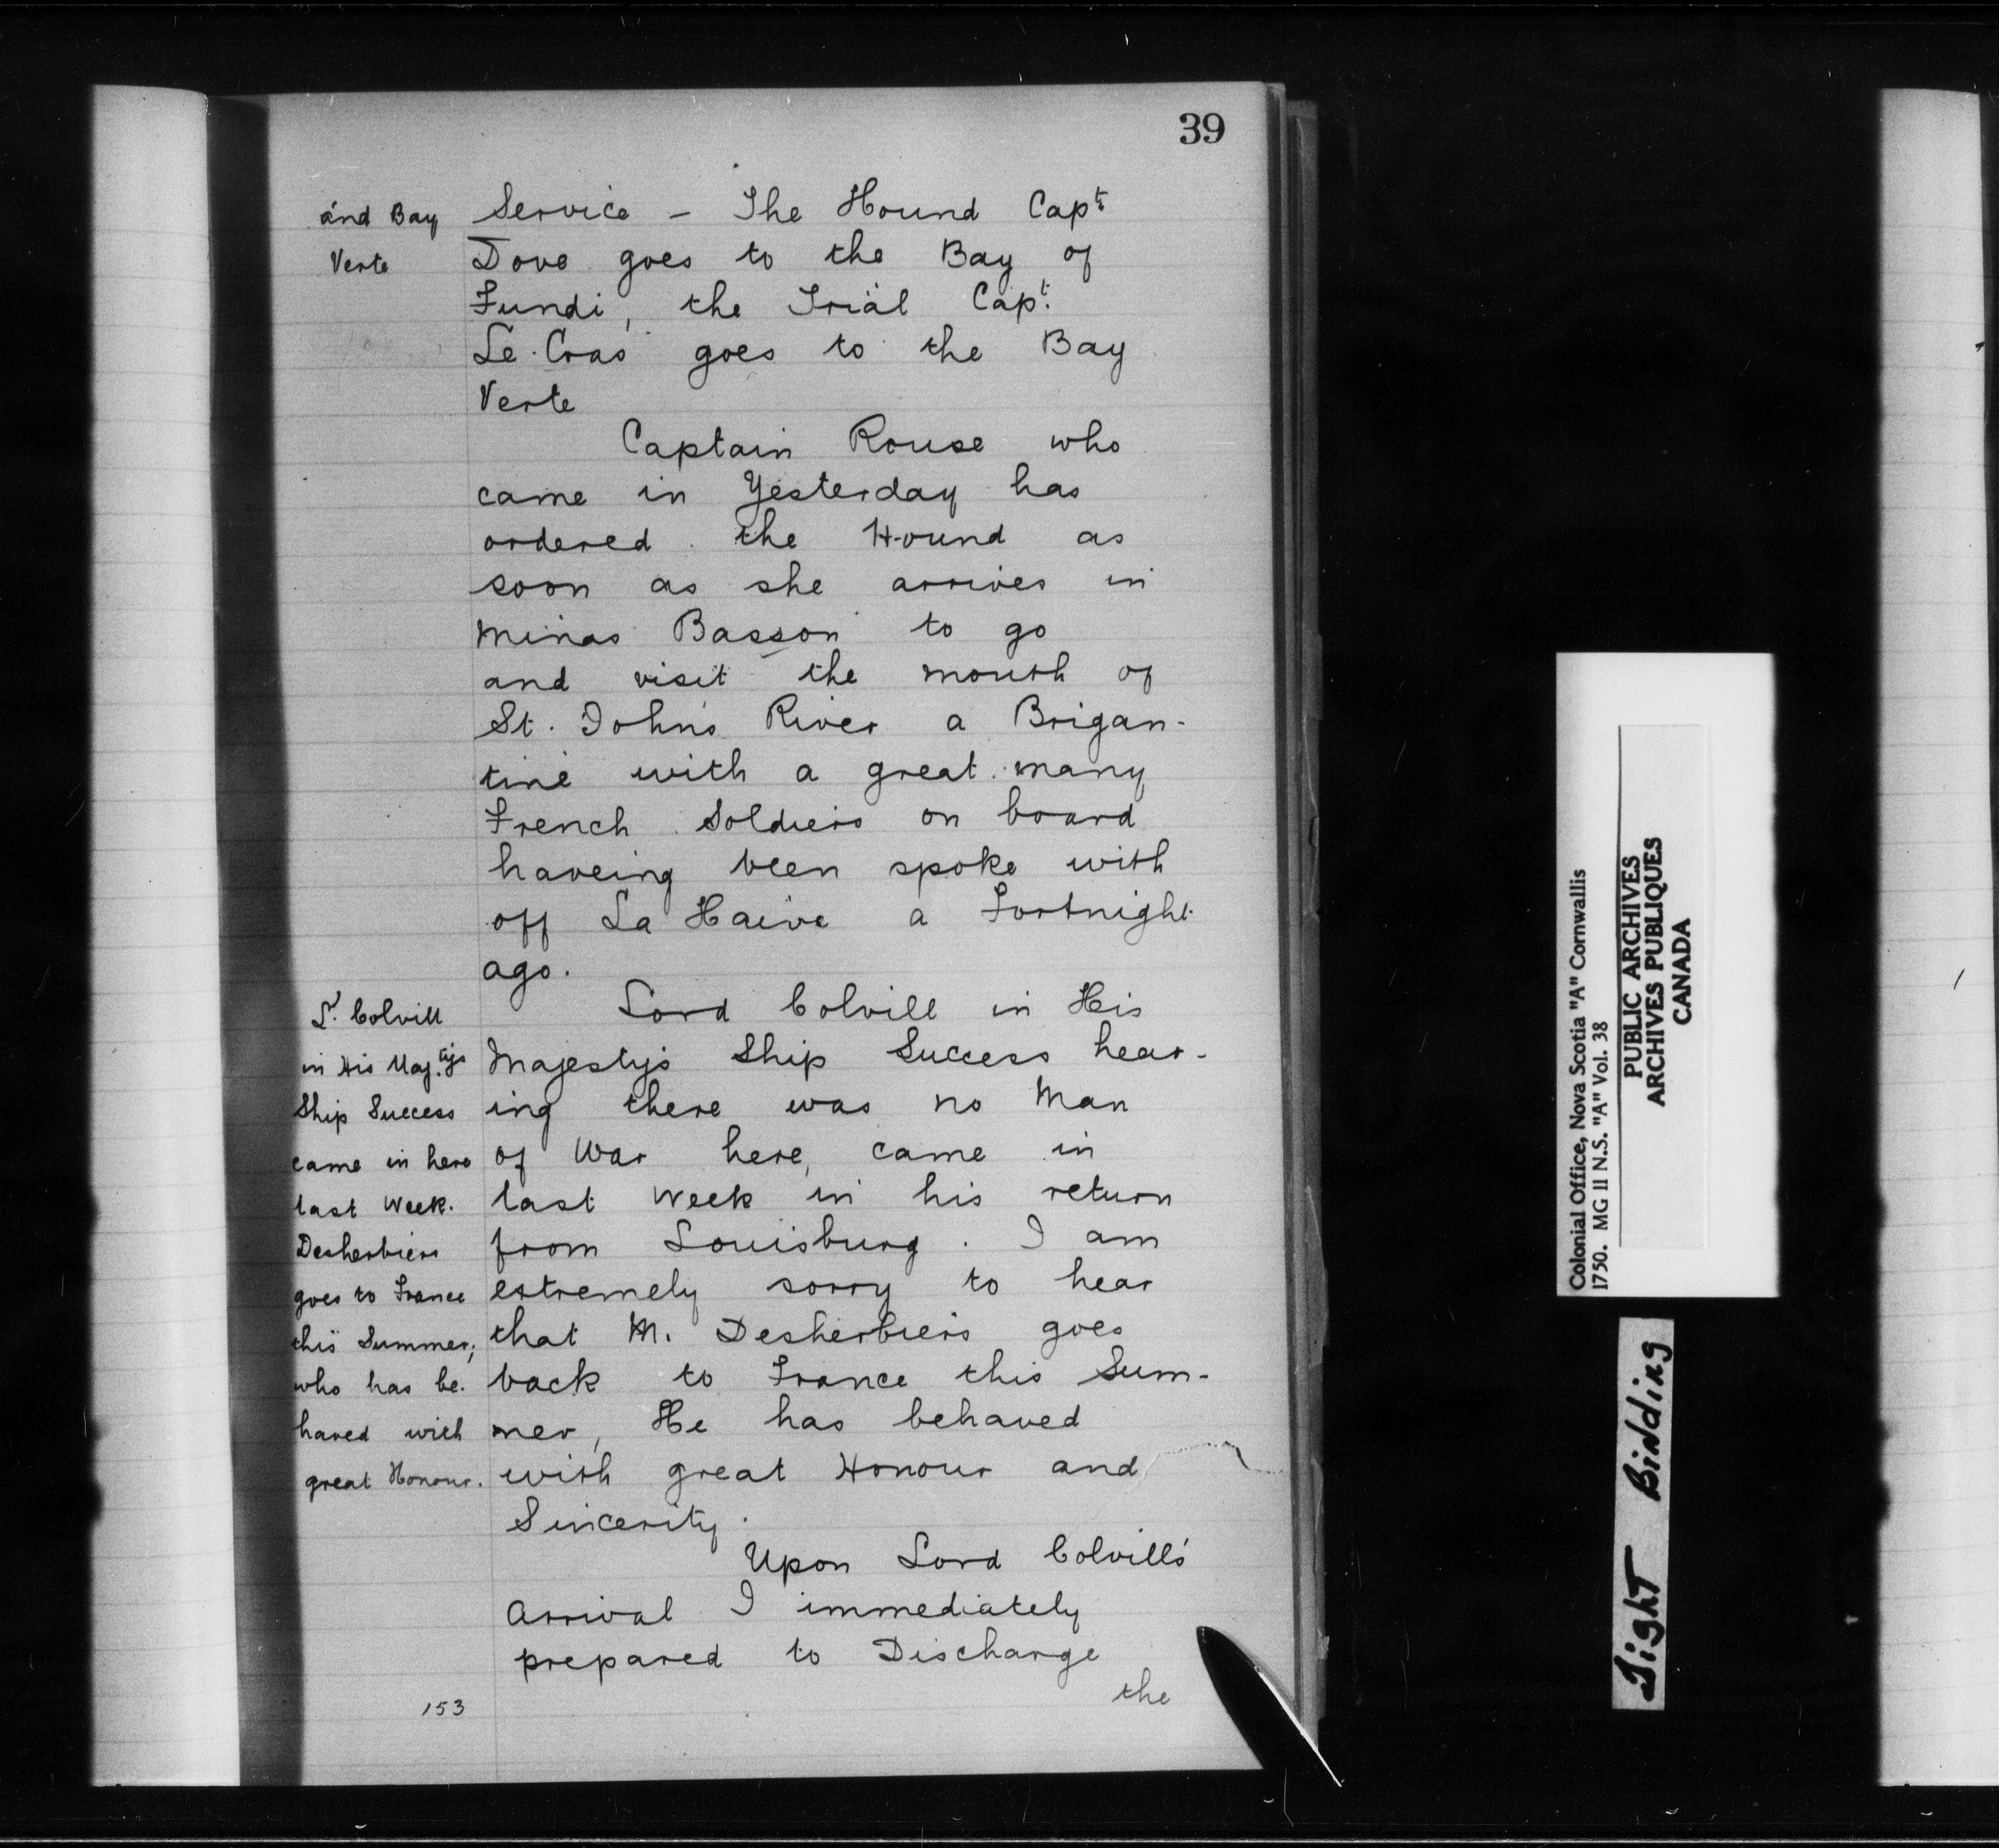 39
and Bay
Verte
Service - The Hound Capt
Dove goes to the Bay of
Fundi, the Trial Capt.
Le. Cras goes to the Bay
Verte
Captain Rouse who
came in Yesterday has
ordered the Hound as
soon as she arrives in
Minas Basson to go
and visit the mouth of
St. John's River a Brigan-
tine with a great many
French Soldiers on board
haveing been spoke with
off La Haive a Fortnight
ago.
Ld. Colvill
in His Maj.tys
Ship Success
came in here
last Week.
Desherbiers
goes to France
this Summer;
who has be-
haved with
great Honour.
Lord Colvill in His
Majestys Ship Success hear-
ing there was no Man
of War here, came in
last Week in his return
from Louisburg. I am
extremely sorry to hear
that M. Desherbiers goes
back to France this Sum-
mer, He has behaved
with great Honour and
Sincerity.
Upon Lord Colvills
Arrival I immediately
prepared to Discharge
the
153
Colonial Office, Nova Scotia "A" Cornwallis
1750. MG 11 N.S. "A" Vol. 38
PUBLIC ARCHIVES
ARCHIVES PUBLIQUES
CANADA
Tight Binding